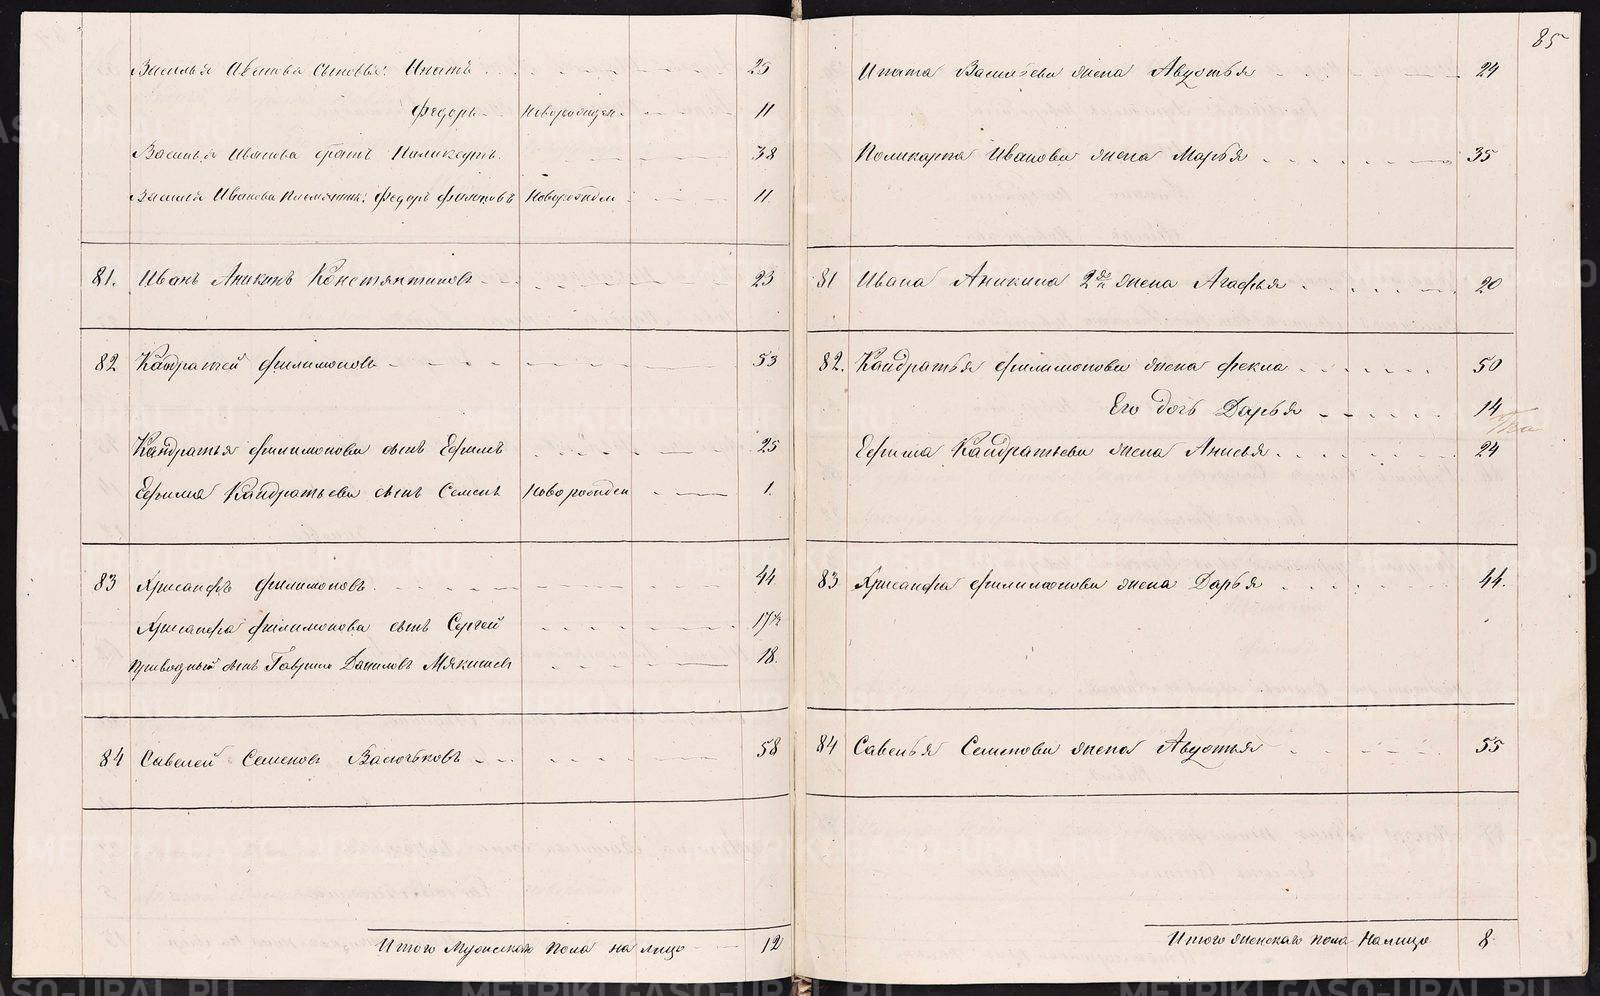 85
Василья Иванова сыновья: Ипатъ 25
Федоръ Новорожден. 11
Василья Иванова братъ Поликарпъ. 38
Василья Иванова племянник: Федоръ Новорожден 11.
81. Иванъ Аникинъ Константиновъ 23
82 Кандратей Филимоновъ 53
Кандратья Филимонова сынъ Ефимъ 25
Ефима Кандратьева сынъ Семенъ Новорожден 1.
83 Хрисанфъ Филимоновъ 44
Хрисанфа Филимонова сынъ Сергей
Приводный сынъ Гаврило Даниловъ Мякишевъ 18.
84 Савелей Семеновъ Васючковъ 58
Итого Мужескаго пола на лицо 12
Ипата Васильева жена Авдотья 24
Поликарпа Иванова жена Марья 35
81 Ивана Аникина 2я жена Агафья 20
82. Кандратья Филимонова жена Фекла 50
Его дочь Дарья 14
Ефима Кандратьева жена Анисья 24
83 Хрисанфа Филимонова жена Дарья 44.
84 Савелья Семенова жена Авдотья 55
Итого женскаго пола налицо 8
METRIKI.GASO-URAL.RU